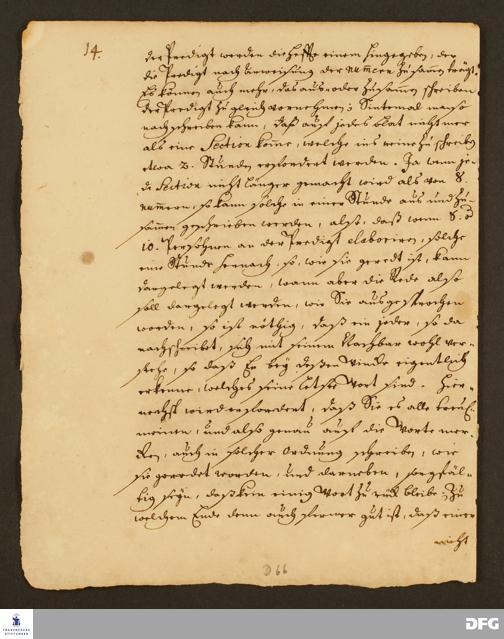 14.
der Predigt werden die Heffte einem hingegeben, der
die Predigt nach anweisung der numern zusammen trägt.
Es können auch mehr, das aus- oder zusammen schreiben
der Predigt zugleich vornehmen: Sintemal man so
nachschreiben kann, daß auf jedes blat nicht mehr
als eine Section komme, welche ins reine zu schreiben
etwa 2. Stunden erfordert werden. Ja wenn je-
de Section nicht länger gemacht wird als von 8.
numern, so kann solche in einer Stunde aus und zu-
sammen geschrieben werden, also, daß wenn 8. 
10. Persohnen an der Predigt elaboriren, solche
eine Stunde hernach, so, wie sie geredt ist, kann
dargelegt werden, wann aber die Rede also
soll dargelegt werden, wie Sie ausgesprochen
worden, so ist nöthig, daß ein jeder, so da
nachschreibet, sich mit seinem Nachbar wohl ver-
stehe, so daß Er bey deßen Wincke eigentlich
erkenne, welches seine letzte Wort sind. Hier-
nechst wird erfordert, daß Sie es alle treul.
meinen, und also genau auf die Worte mer-
ken, auch in solcher Ordnung schreiben, wie
sie geredet worden, und darneben, sorgfäl-
tig seyn, daß kein einig Wort zurück bleibe; zu
welchem Ende denn auch ferner gut ist, daß einer
nicht
D 66
FRANCKESCHE
STIFTUNGEN
DFG